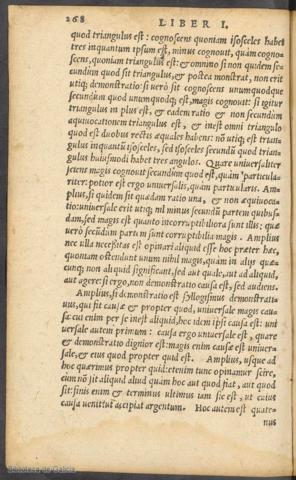 268 LIBER I.
quod triangulus est: cognoscens quoniam isosceles habet
tres in quantum ipsum est, minus cognouit, quàm cogno-
scens, quoniam triangulus est: & omnino si non quidem se-
cundùm quod sit triangulus, & postea monstrat, non erit
utiq; demonstratio: si uerò sit cognoscens unumquodque
secundùm quod unumquodq; est, magis cognouit: si igitur
triangulus in plus est, & eadem ratio & non secundùm
æquiuocationem triangulus est, & inest omni triangulo
quod est duobus rectis æquales habens: nō utiq; est trian-
gulus inquantū isosceles, sed isosceles secundū quod trian-
gulus huiusmodi habet tres angulos. Quare uniuersaliter
sciens magis cognouit secundùm quod est, quàm particula-
riter: potior est ergo uniuersalis, quàm particularis. Am-
plius, si quidem sit quædam ratio una, & non æquiuoca-
tio: uniuersale erit utiq; nil minus secundū partem quibus-
dam, sed magis est quanto incorruptibiliora sunt illa: quæ
uerò secūdùm partem sunt corruptibilia magis. Amplius
nec ulla necessitas est opinari aliquid esse hoc præter hæc,
quoniam ostendunt unum nihil magis, quàm in aliis quæ-
cunq; non aliquid significant, sed aut quale, aut ad aliquid,
aut agere: si ergo, non demonstratio causa est, sed audiens.
Amplius, si demonstratio est syllogismus demonstrati-
uus, qui fit causæ & propter quod, uniuersale magis cau-
sa: cui enim per se inest aliquid, hoc idem ipsi causa est: uni
uersale autem primum: causa ergo uniuersale est, quare
& demonstratio dignior est: magis enim causæ est uniuer-
sale, & eius quod propter quid est. Amplius, usque ad
hoc quærimus propter quid: etenim tunc opinamur scire,
cum nō sit aliquid aliud quàm hoc aut quod fiat, aut quod
sit: finis enim & terminus ultimus iam sic est, ut cuius
causa uenit? ut accipiat argentum. Hoc autem est quate-
nus
Biblioteca de Galicia